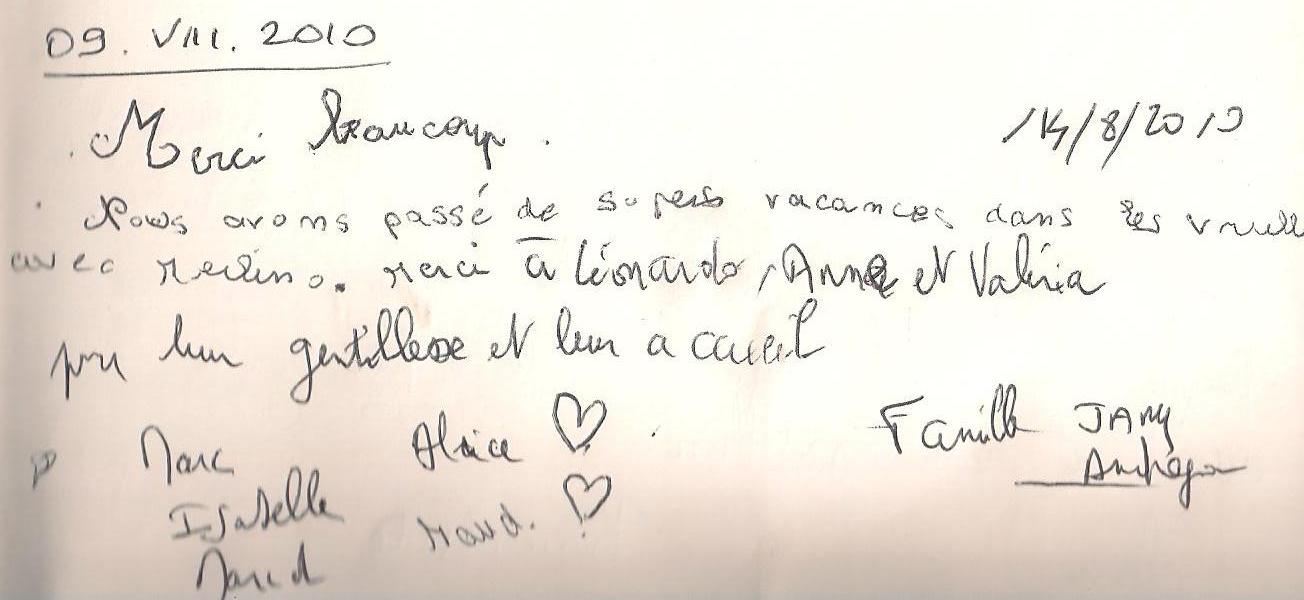 09. VIII. 2010
Merci beaucoup.
14/8/2010
Nous avons passé de supers vacances dans les
avec Merlino. Merci à Léonardo, Anne et Valéria
pour leur gentillesse et leur acaueil
Marc
Alice ♡
Famille JAMY
Isabelle
Maud. ♡
David